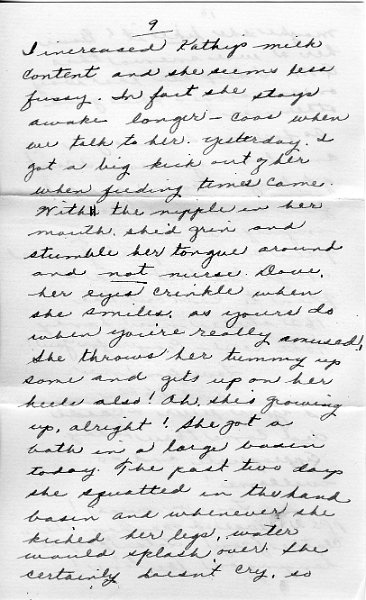 9
I increased Kathy's milk
content and she seems less
fussy. In fact she stays
awake longer - coos when
we talk to her. Yesterday, I
got a big kick out of her
when feeding times came.
With the nipple in her
mouth, she'd grin and
stumble her tongue around
and not nurse. Dave,
her eyes crinkle when
she smiles, as yours do
when you're really amused!
She throws her tummy up
some and gets up on her
heels also! Oh, she's growing
up, alright! She got a
bath in a large basin
today. The past two days
she squatted in the hand
basin and whenever she
kicked her legs, water
would splash over. She
certainly doesn't cry, so